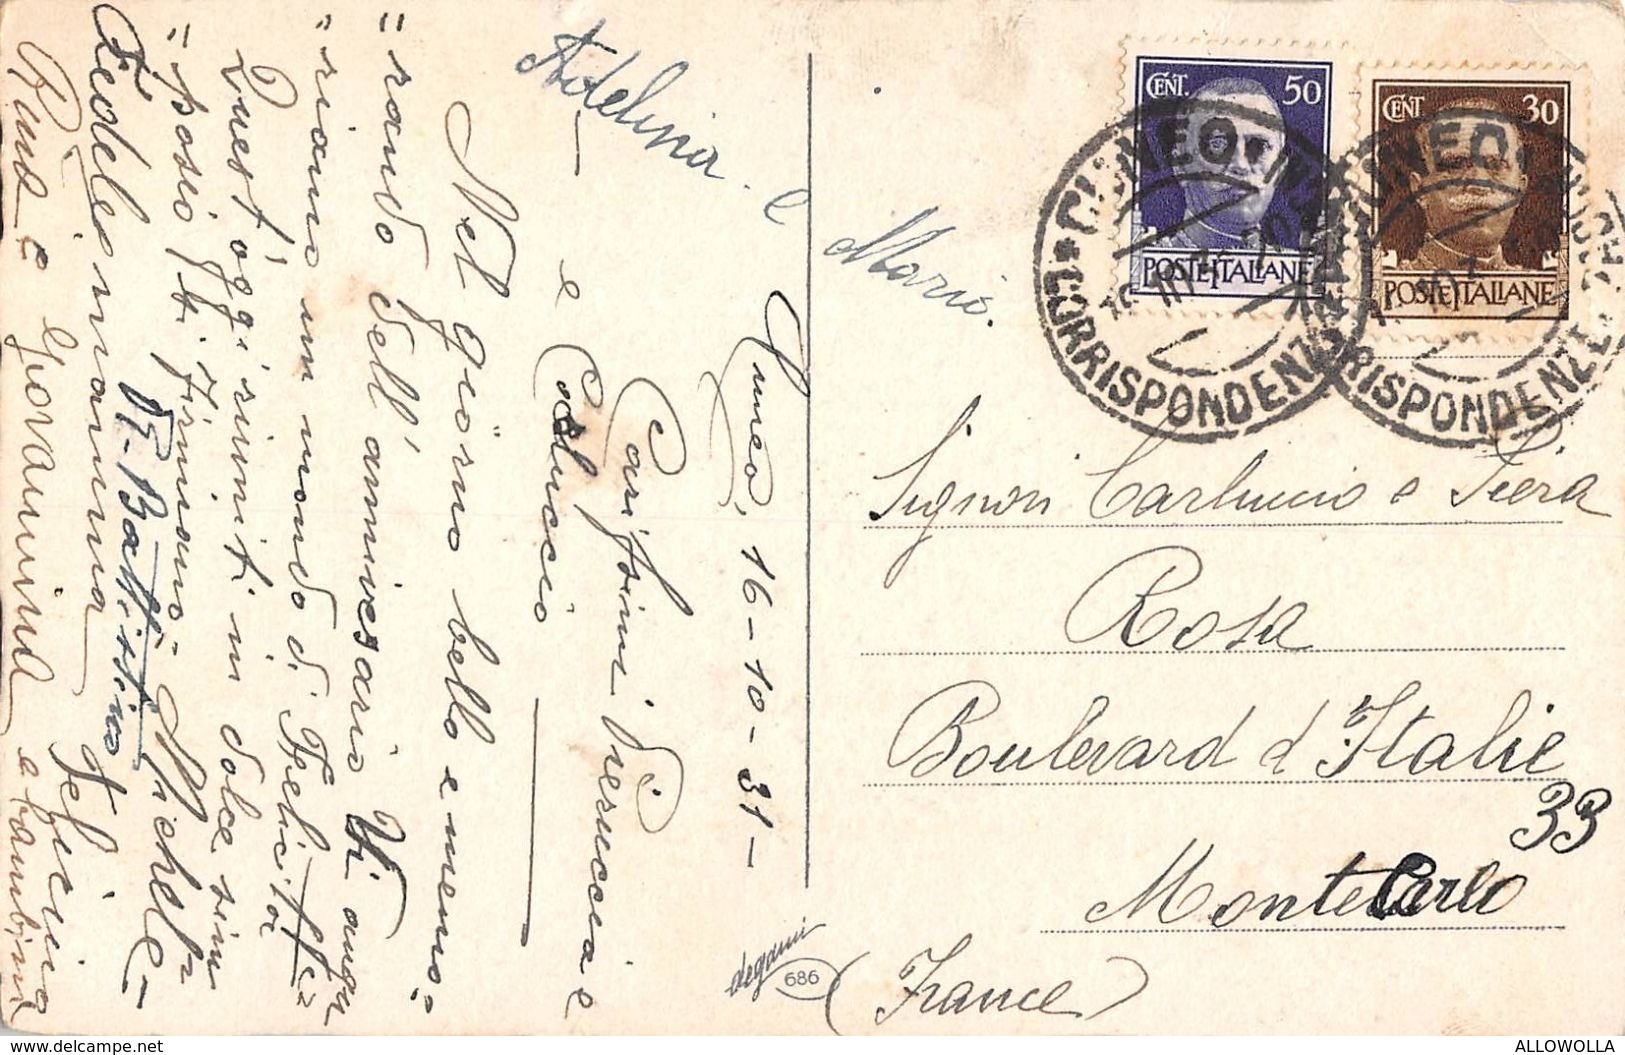 Adelina e
Mario.
Cuneo, 16-10-31-
Carissimi Pierucccia e
e Carluccio
Nel giorno bello e memo=
=rando dell'anniversario Vi augu
=riamo un mondo di Felicità
Quest'oggi riuniti in dolce sim
=posio ci firmiamo. Michele-
Battistino
Fedeles mamina Felicina
Rina e Giovannina e bambina
CENT. 50
POSTE ITALIANE
CENT. 30
POSTE ITALIANE
CUNEO
CORRISPONDENZE
CUNEO
CORRISPONDENZE
Signori Carluccio e Piera
Rosa
Boulevard d'Italie
33
Montecarlo
(France)
degami
686
https://www.delcampe.net
ALLOWOLLA